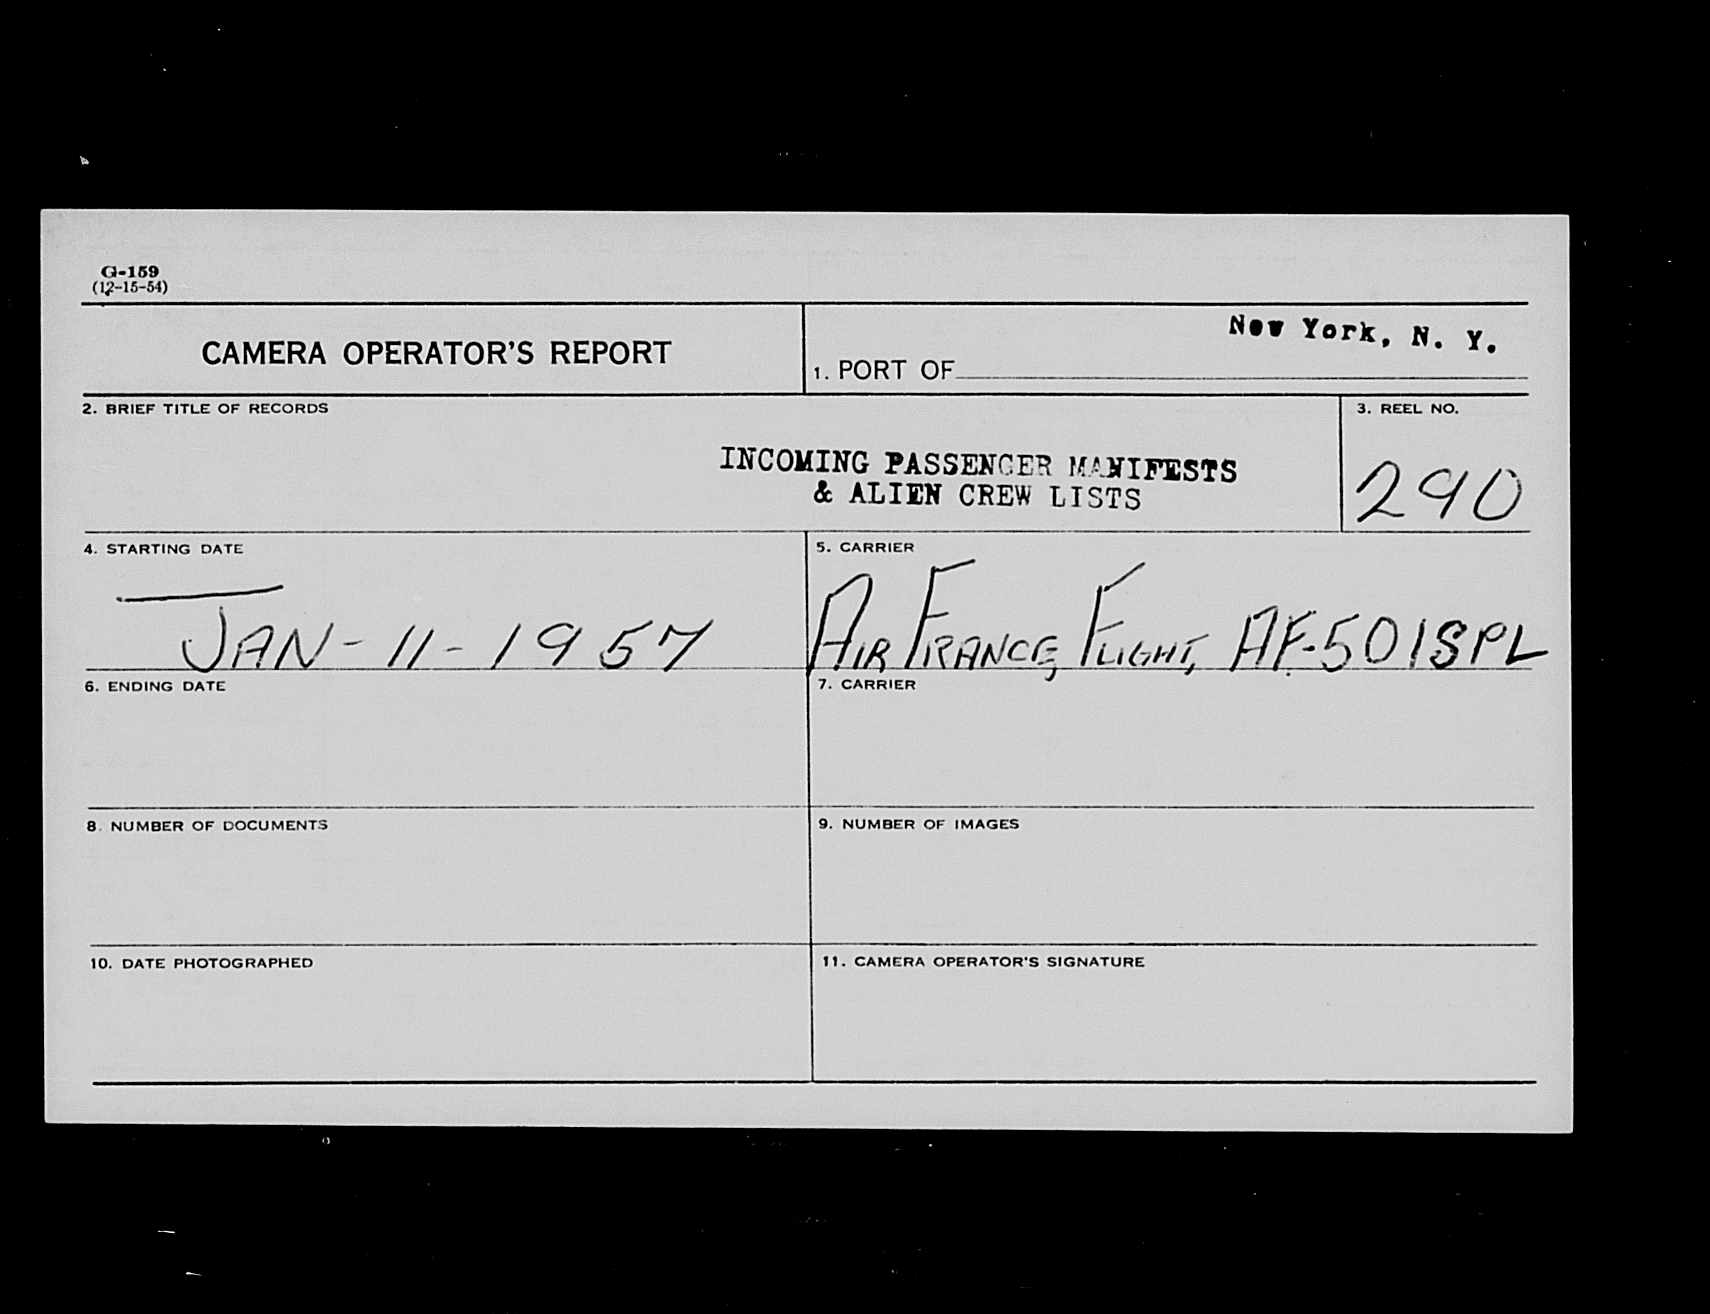 G-159
(12-15-54)
CAMERA OPERATOR'S REPORT
New York, N. Y.
1. PORT OF
2. BRIEF TITLE OF RECORDS
3. REEL NO.
INCOMING PASSENGER MANIFESTS
& ALIEN CREW LISTS
290
4. STARTING DATE
5. CARRIER
JAN-11-1957
AIR FRANCE, FLIGHT, AF-501SPL
6. ENDING DATE
7. CARRIER
8. NUMBER OF DOCUMENTS
9. NUMBER OF IMAGES
10. DATE PHOTOGRAPHED
11. CAMERA OPERATOR'S SIGNATURE